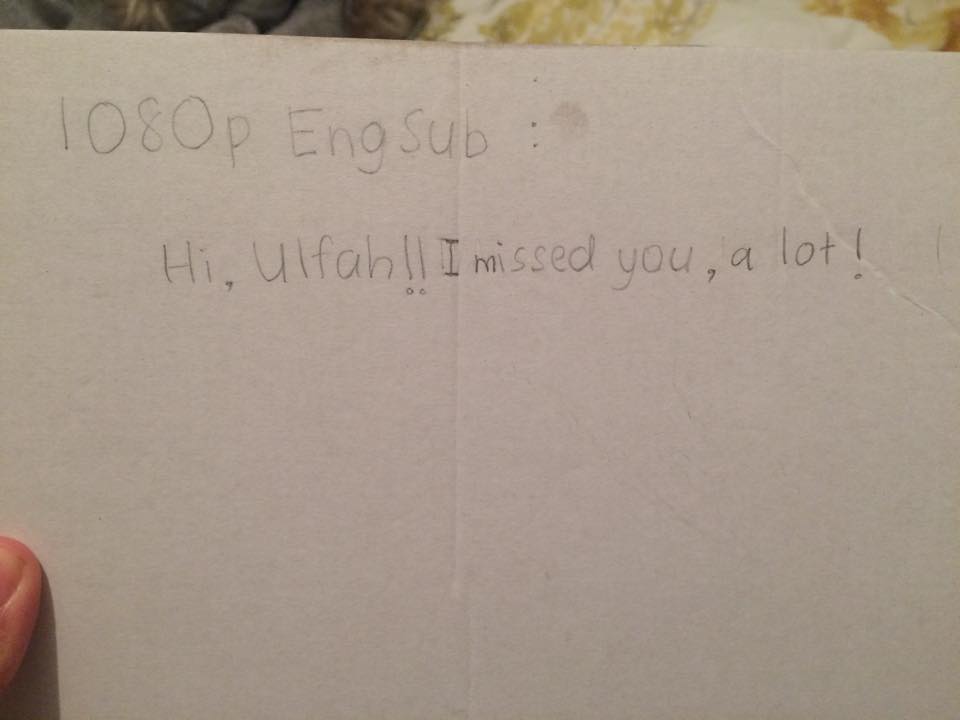 1080p EngSub :
Hi, Ulfah!! I missed you, a lot!